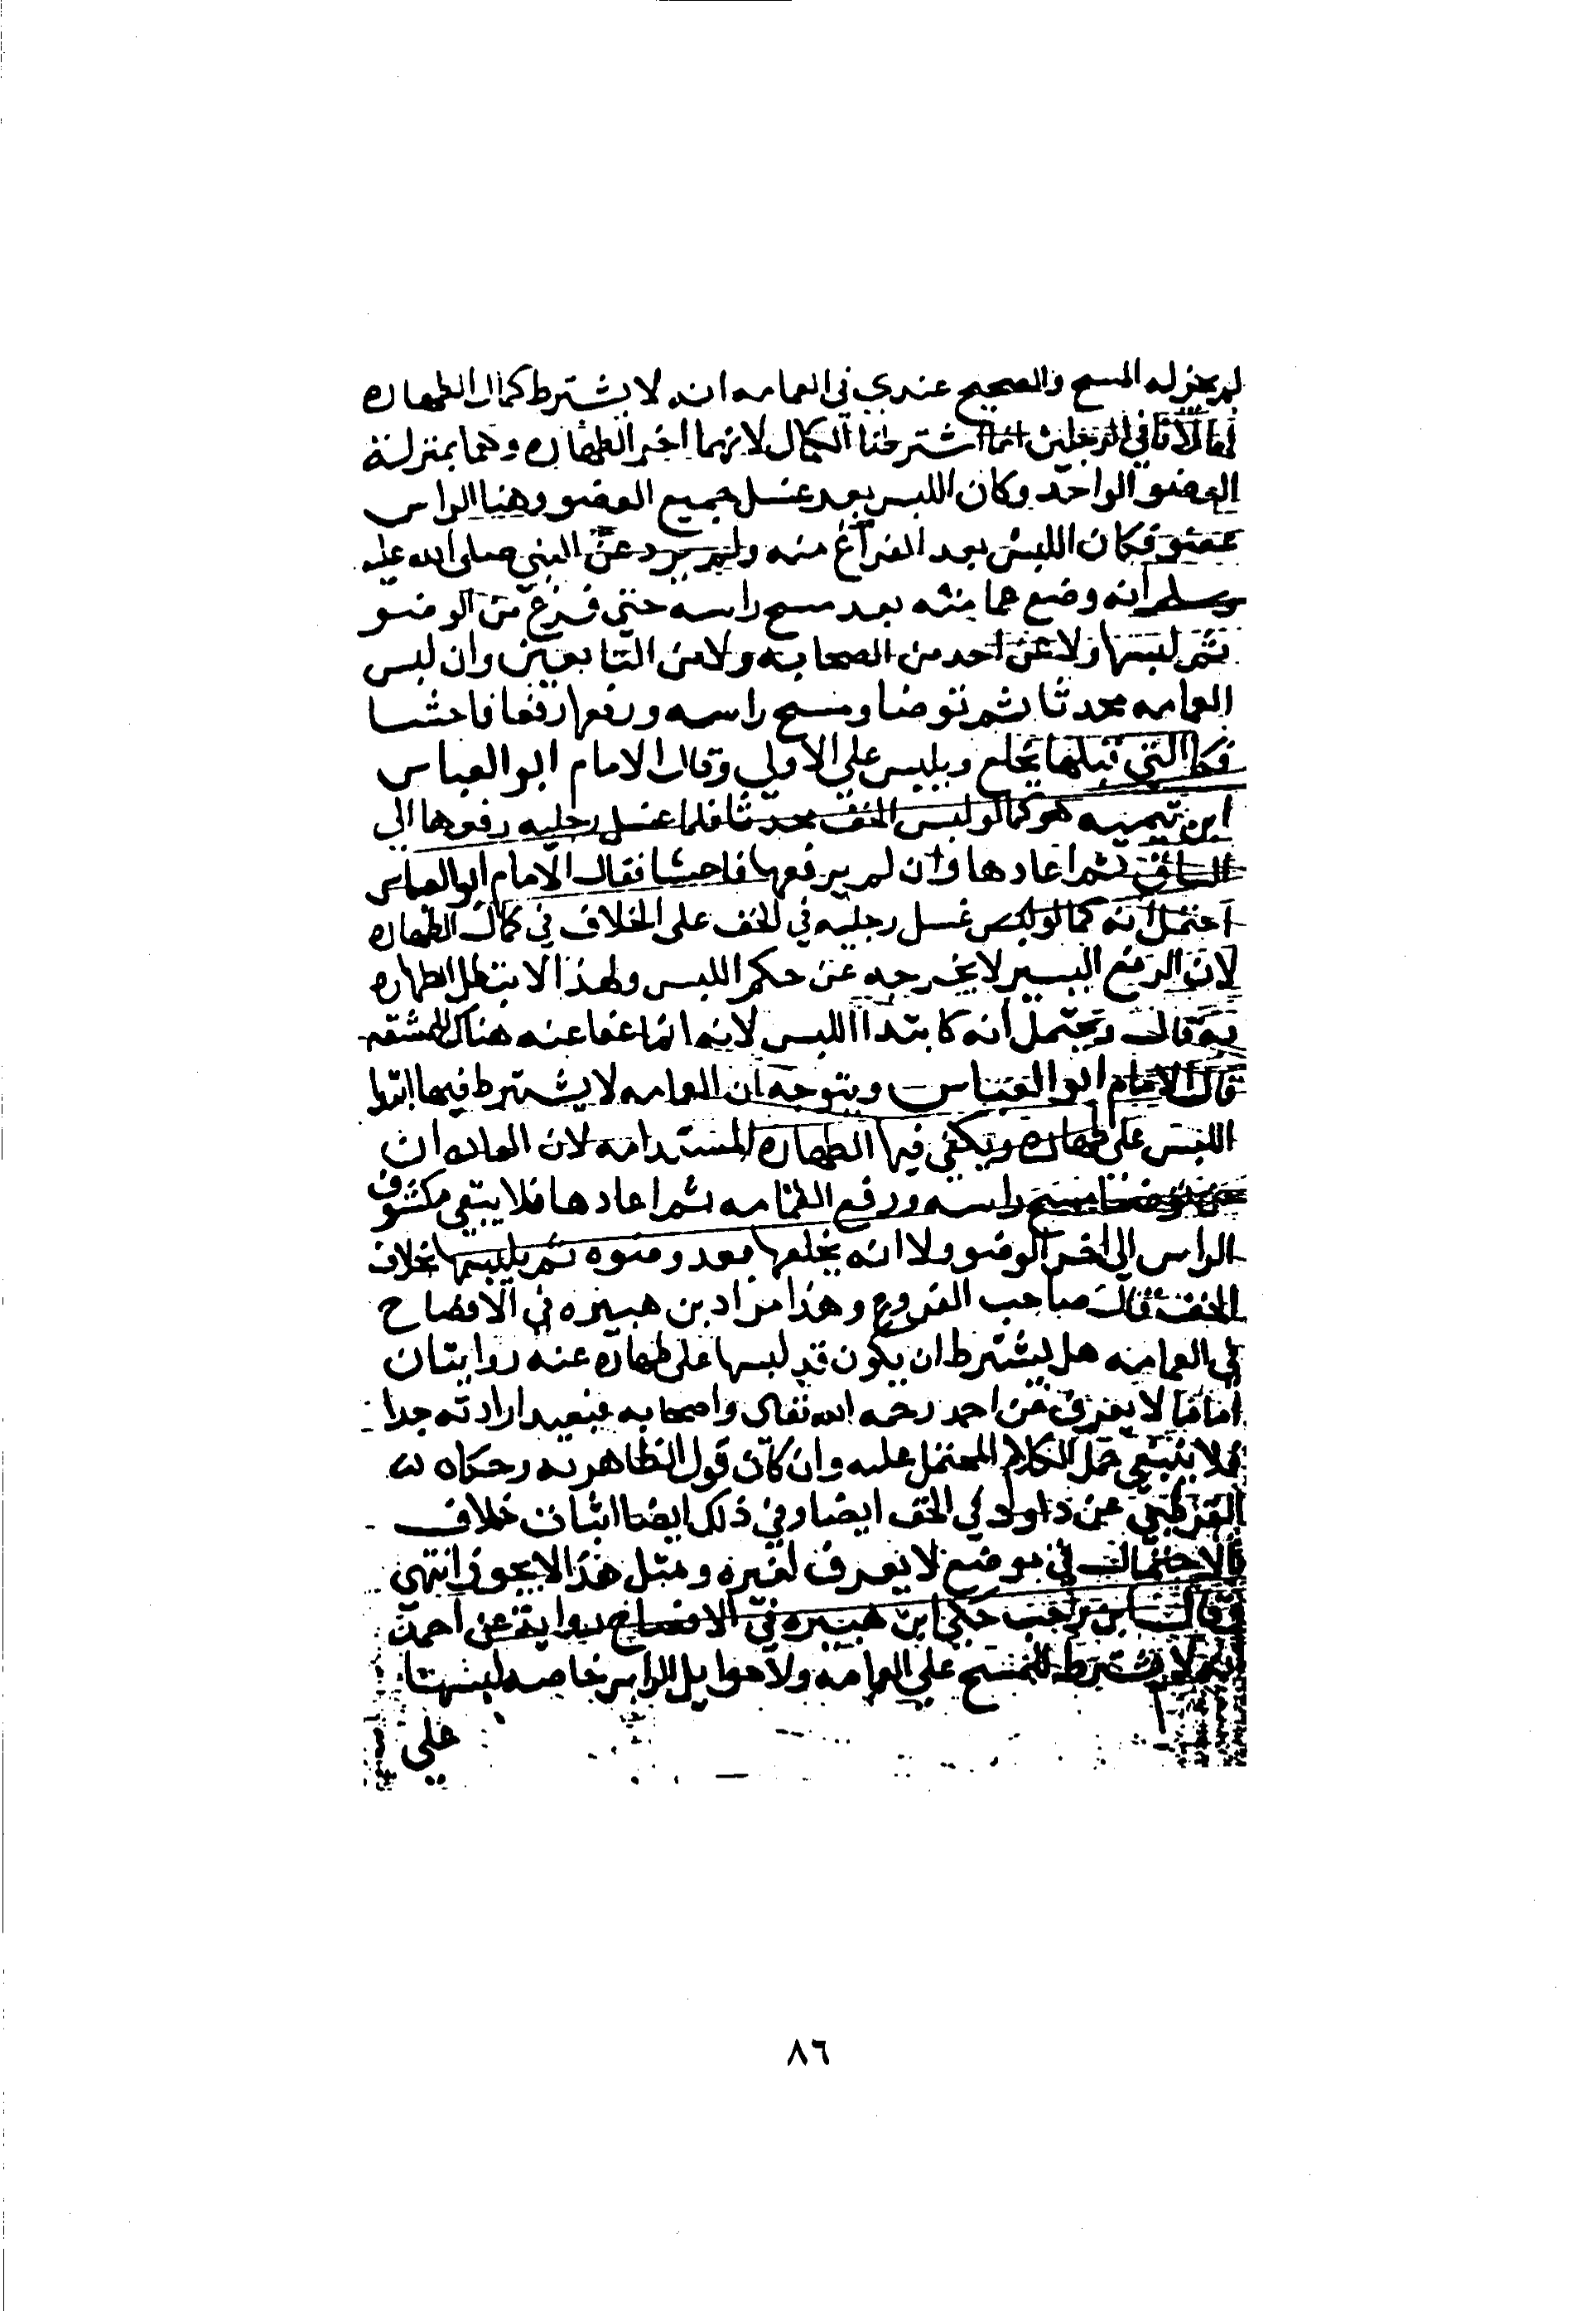 لم يجز له المسح والصحيح عندي في العمامه انه لا يشترط كمال الطهاره
لانا في الرجلين انما اشترطنا الكمال لانهما اخر الطهاره وهما بمنزلة
العضو الواحد وكان اللبس بعد غسل جميع العضو وهنا الراس
عضو فكان اللبس بعد الفراغ منه ولم يرد عن النبي صلى الله عليه
وسلم انه وضع عمامته بعد مسح راسه حتي فرغ من الوضو
ثم لبسها ولا عن احد من الصحابه ولا من التابعين وان لبس
العمامه محدثا ثم توضا ومسح راسه ورفعها رفعا فاحشا
فكالتي قبلها يخلع ويلبس علي الاولي وقال الامام ابو العباس
ابن تيميه هو كما لو لبس الخف محدثا فلما غسل رجليه رفعوها الي
الساق ثم اعادها وان لم يرفعها فاحشا فقال الامام ابو العباس
احتمل انه كما لو لبس غسل رجليه في الخف على الخلاف في كمال الطهاره
لان الرفع اليسير لا يخرجه عن حكم اللبس ولهذا لا تبطل الطهاره
به قال ويحتمل انه كابتدا اللبس لانه انما عفا عنه هناك للمشقه
قال الامام ابو العباس ويتوجه ان العمامه لا يشترط فيها ابتدا
اللبس علي طهاره ويكفي فيها الطهاره المستدامه لان العاده ان
من توضا مسح راسه ورفع العمامه ثم اعادها فلا يبقي مكشوف
الراس الي اخر الوضو ولا انه يخلعها بعد وضوه ثم يلبسها بخلاف
الخف قال صاحب الفروع وهذا مراد بن هبيره في الافصاح
في العمامه هل يشترط ان يكون قد لبسها على طهاره عنه روايتان
اما ما لا يعرف عن احمد رحمه الله تعالى واصحابه فبعيد ارادته جدا
فلا ينبغي حمل الكلام المحتمل عليه وان كان قول الظاهريه وحكاه
القرطبي عن داود في الخف ايضا وفي ذلك ايضا اثبات خلاف
بالاحتمال في موضع لا يعرف لغيره ومثل هذا لا يجوز انتهي
وقال ابن رجب حكي ابن هبيره في الافصاح روايتة عن احمد
انه لا يشترط للمسح علي العمامه ولا حوايل الراس خاصه لبسها
علي
٨٦